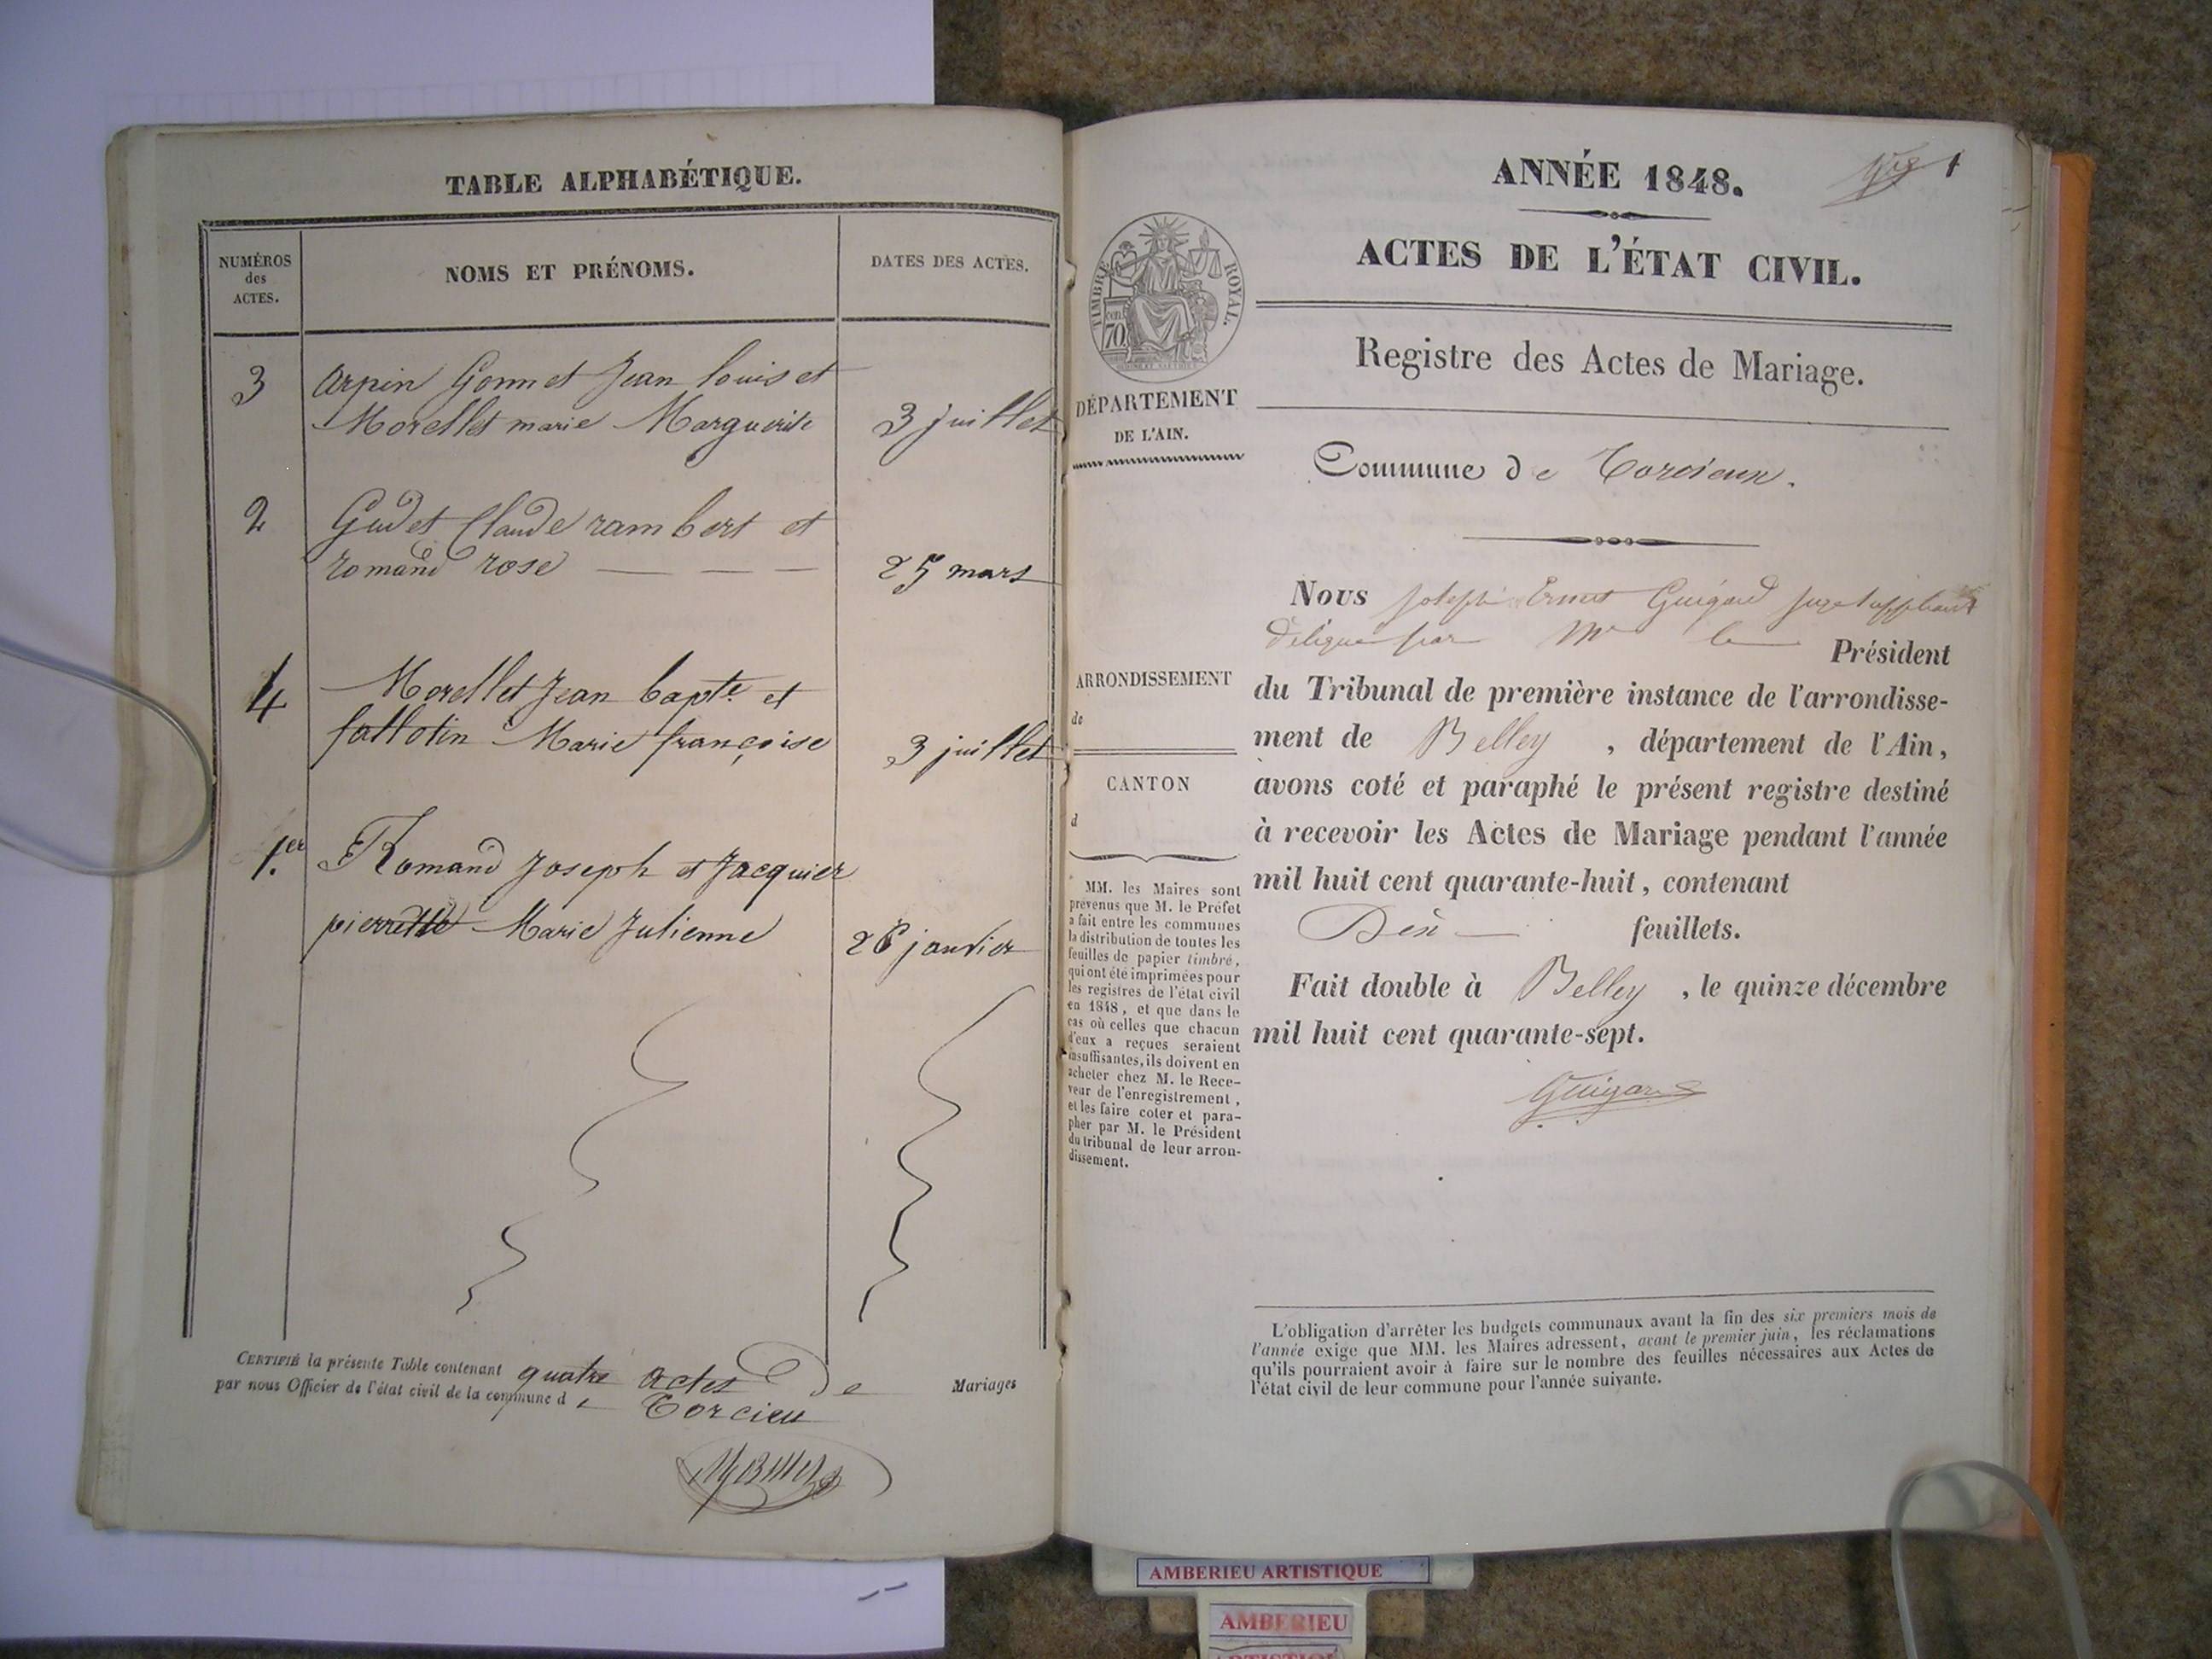 TABLE ALPHABÉTIQUE.
NUMÉROS
des
ACTES.
NOMS ET PRÉNOMS.
DATES DES ACTES.
3 Arpin Gonnet Jean louis et
Morellet marie Marguerite 3 juillet
2 Gudet Claude rambert et
romand rose — — — 25 mars
4 Morellet Jean bapte et
fallotin Marie françoise 3 juillet
1.er Romand Joseph et Jacquier
pierrette Marie Julienne 26 janvier
CERTIFIÉ la présente Table contenant quatre actes de Mariages
par nous Officier de l'état civil de la commune de Torcieu
ANNÉE 1848.
1
ACTES DE L'ÉTAT CIVIL.
TIMBRE ROYAL.
cent.
70
DÉPARTEMENT
DE L'AIN.
Registre des Actes de Mariage.
Commune de Torcieux.
Nous Joseph Ernest Guigard juge suppléant
délégué par Mr le Président
du Tribunal de première instance de l'arrondisse-
ment de Belley, département de l'Ain,
avons coté et paraphé le présent registre destiné
à recevoir les Actes de Mariage pendant l'année
mil huit cent quarante-huit, contenant
Dix feuillets.
Fait double à Belley, le quinze décembre
mil huit cent quarante-sept.
Guigard
ARRONDISSEMENT
de
CANTON
d
MM. les Maires sont
prévenus que M. le Préfet
a fait entre les communes
la distribution de toutes les
feuilles de papier timbré,
qui ont été imprimées pour
les registres de l'état civil
en 1848, et que dans le
cas où celles que chacun
d'eux a reçues seraient
insuffisantes, ils doivent en
acheter chez M. le Rece-
veur de l'enregistrement,
et les faire coter et para-
pher par M. le Président
du tribunal de leur arron-
dissement.
L'obligation d'arrêter les budgets communaux avant la fin des six premiers mois de
l'année exige que MM. les Maires adressent, avant le premier juin, les réclamations
qu'ils pourraient avoir à faire sur le nombre des feuilles nécessaires aux Actes de
l'état civil de leur commune pour l'année suivante.
AMBERIEU ARTISTIQUE
AMBERIEU
ARTISTIQUE